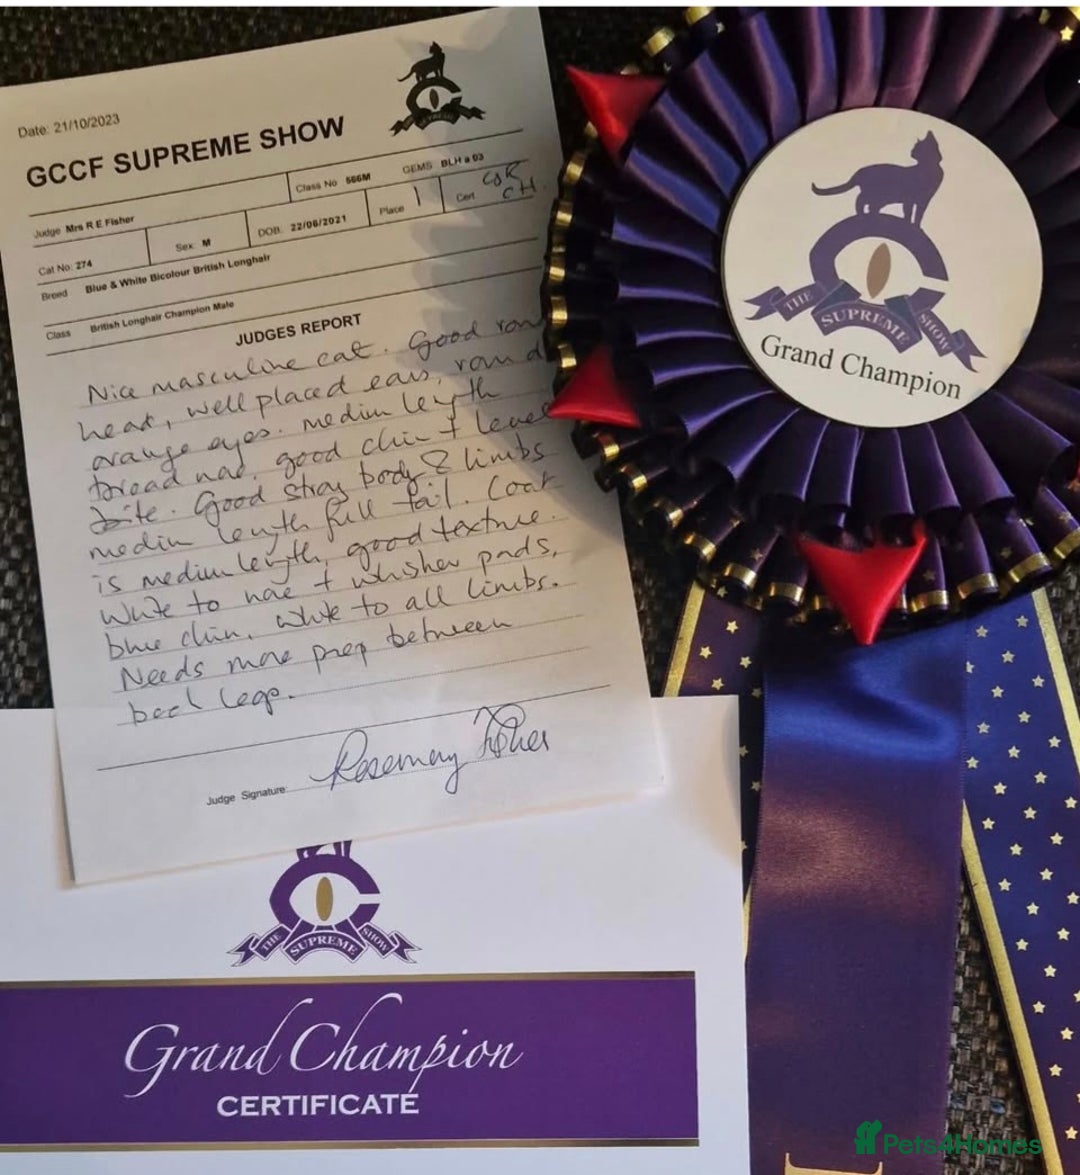 Date: 21/10/2023
GCCF SUPREME SHOW
Class No 566M
GEMS BLH a 03
Judge Mrs R E Fisher
Cat No: 274
Sex: M
DOB: 22/06/2021
Place 1
Cert GR CH.
Breed Blue & White Bicolour British Longhair
Class British Longhair Champion Male
JUDGES REPORT
Nice masculine cat. Good
head, well placed ears, round
orange eyes. medium length
broad nose, good chin + level
bite. Good strong body & limbs
medium length full tail. Coat
is medium length, good texture.
White to nose + whisker pads,
blue chin, white to all limbs.
Needs more prep between
back legs.
Judge Signature: Rosemary Fisher
THE SUPREME SHOW
Grand Champion
THE SUPREME SHOW
Grand Champion
CERTIFICATE
Pets4Homes